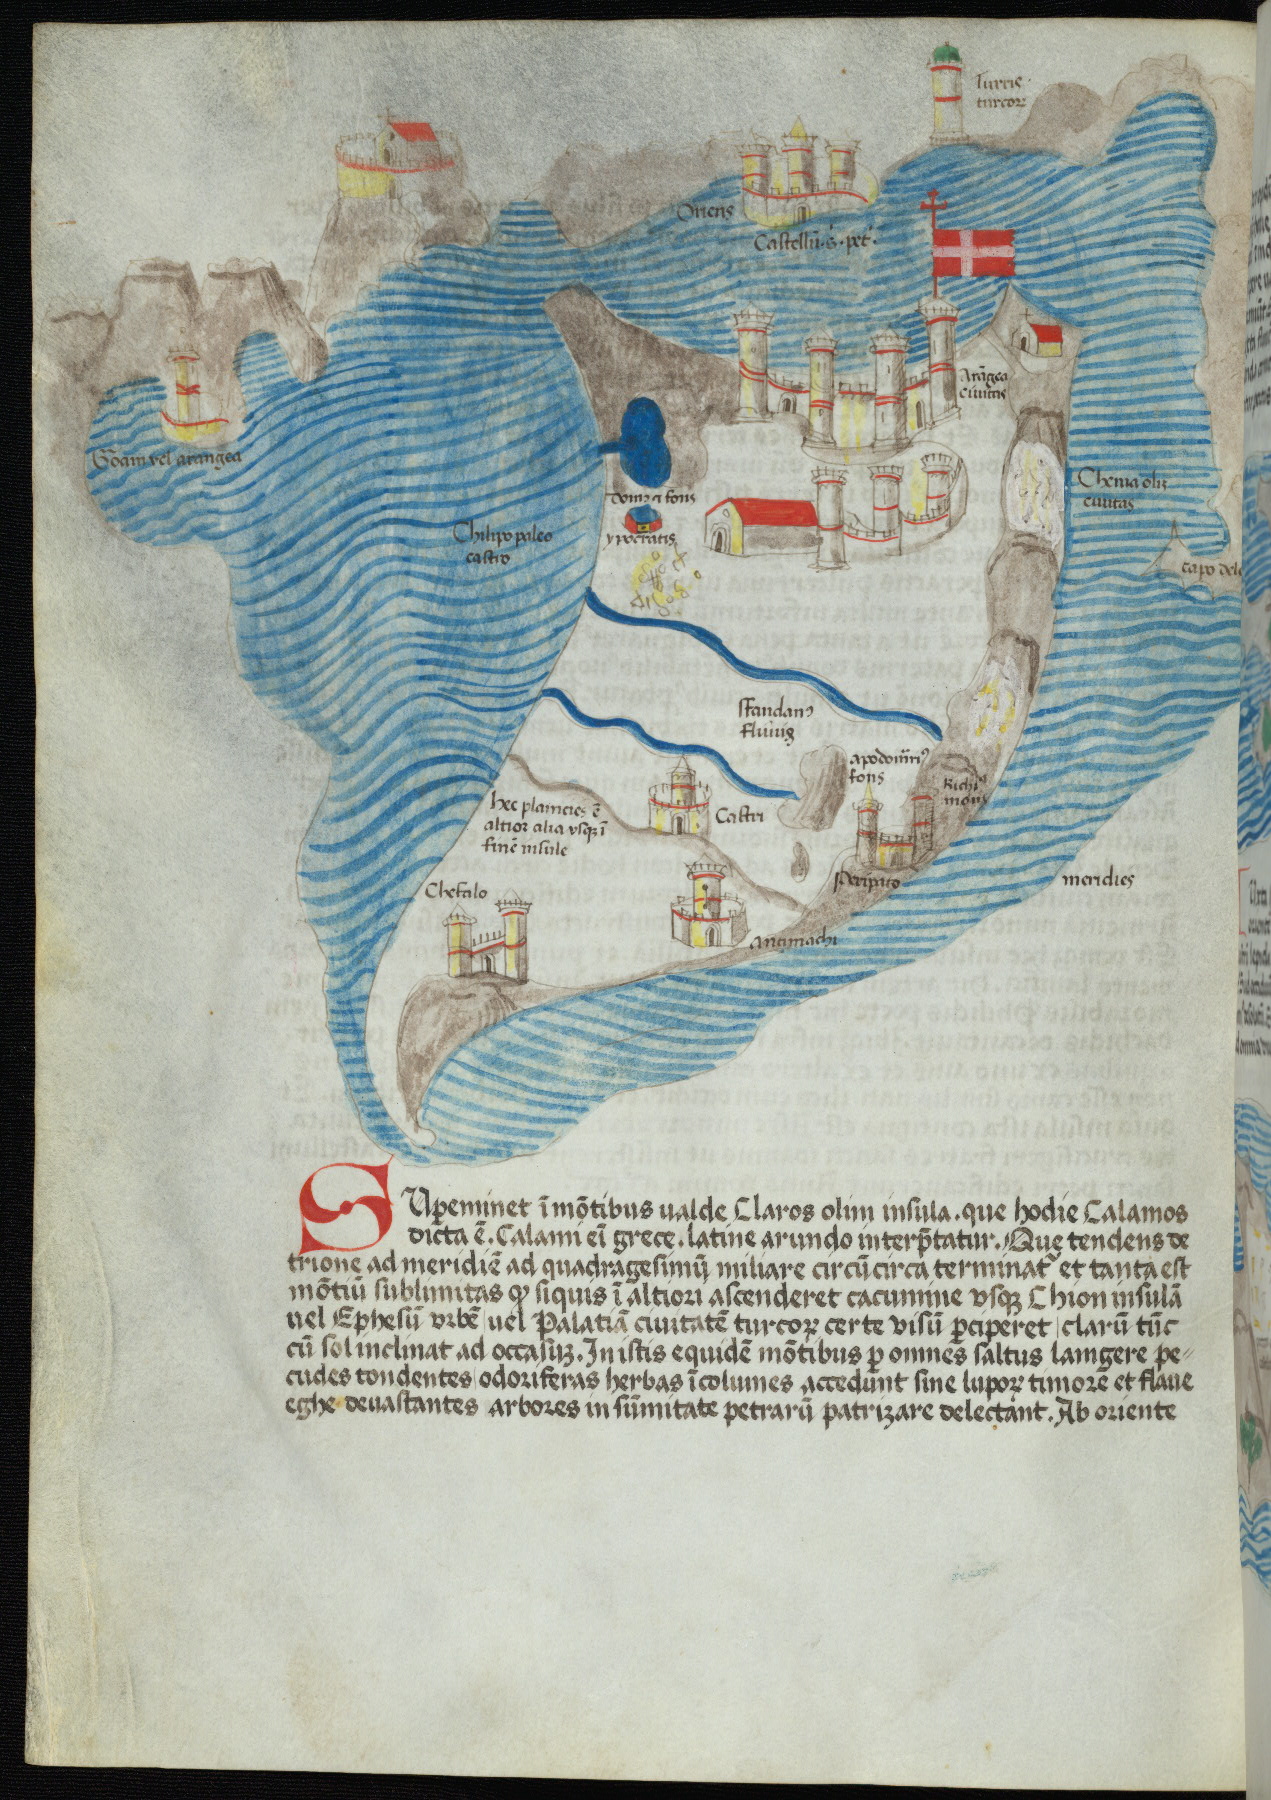 Turris
turcorꝝ
Oriens
Castellū · s̄ · pet͛ ·
Arāgea
ciuitas
Goam vel arangea
Chenia olī
ciuitas
domꝰ ⁊ fons
ypocratis
Chilipo paleo
castro
capo del
Standanꝰ
fluuiꝰ
apodomiriꝰ
fons
Richiꝰ
mons
hec planicies ē
altior alia vsqꝫ ī
finē insule
Castri
Peripato
meridies
Chefalo
Antimachi
SUpeminet ī mōtibus ualde Claros olim insula . que hodie Calamos
dicta ē . Calami eī grece . latine arundo interp̄tatur . Que tendens de
trione ad meridiē ad quadragesimū miliare circū circa terminat͛ et tanta est
mōtiū sublimitas ꝙ siquis ī altiori ascenderet cacumine vsqꝫ Chion insulā
uel Ephesū vrbē uel Palatiā ciuitatē turcoꝝ certe visū ꝑciperet clarū tūc
cū sol inclinat ad occasūꝫ . In istis equidē mōtibus ꝑ omnes saltus lanigere pe-
cudes tondentes odoriferas herbas īcolumes accedūnt sine lupoꝝ timore et flaue
eghe deuastantes arbores in sūmitate petrarū patrizare delectant . Ab oriente